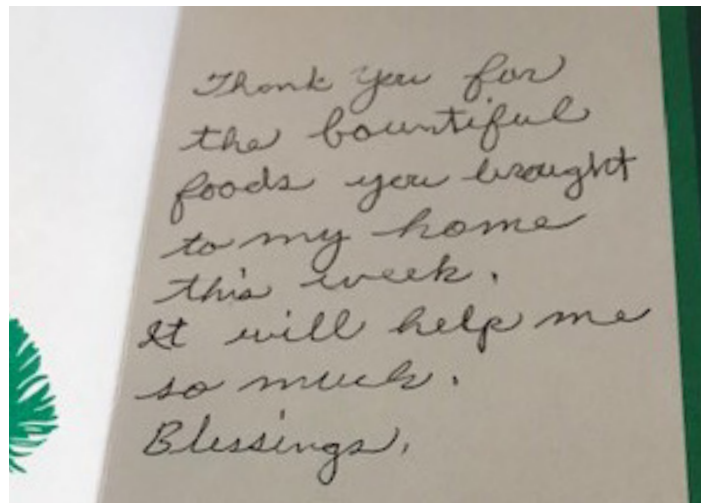 Thank you for
the bountiful
foods you brought
to my home
this week.
It will help me
so much.
Blessings,